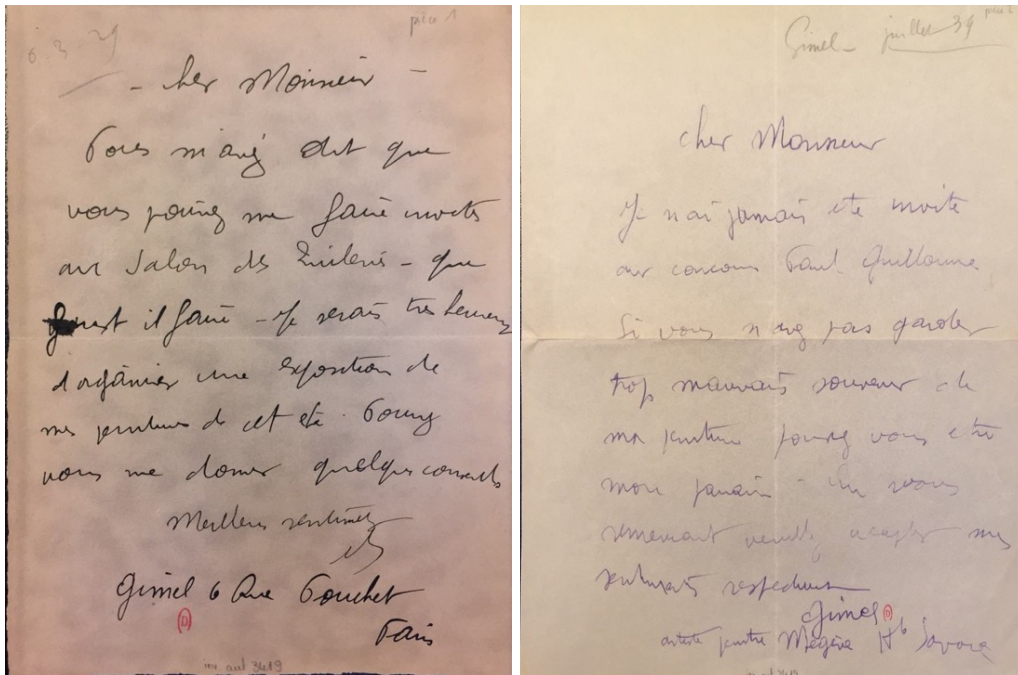 pièce 1
6-3-29
- cher Monsieur -
Vous m'avez dit que
vous pouviez me faire inviter
au Salon des Tuileries - que
faut il faire - Je serais très heureux
d'organiser une exposition de
mes peintures de cet été. Pouvez
vous me donner quelques conseils
Meilleurs sentiments
Gimel 6 Rue Pouchet
Paris
D
aut 3489
pièce 2
Gimel juillet 39
cher Monsieur
Je n'ai jamais été invité
au concours Paul Guillaume
Si vous n'avez pas gardé
trop mauvais souvenir de
ma peinture pouvez vous être
mon parrain - En vous
remerciant veuillez accepter mes
sentiments respectueux
Gimel
artiste peintre Megève Hte Savoie